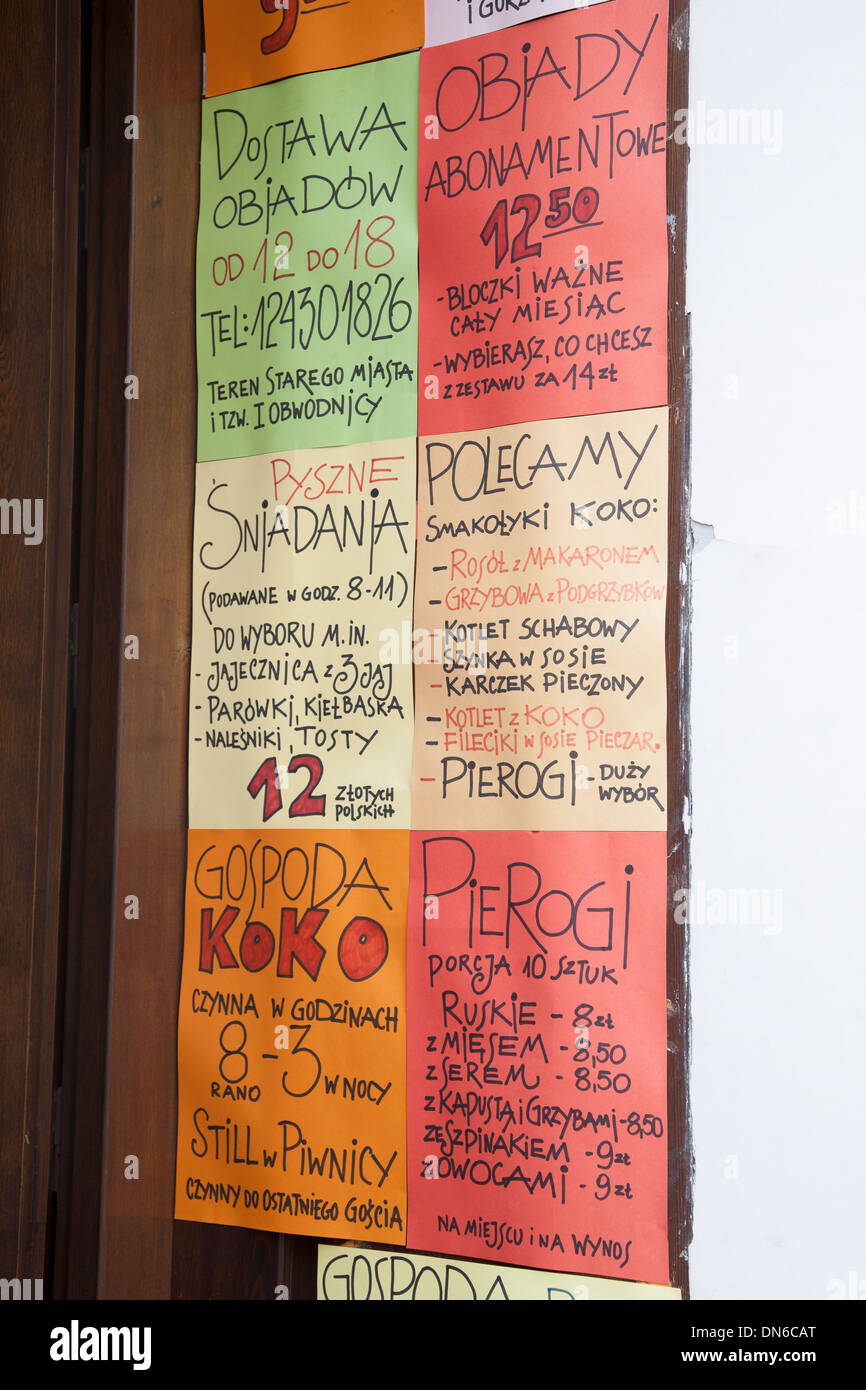 9
I GÓRZ
DOSTAWA
OBIADÓW
OD 12 DO 18
TEL: 124301826
TEREN STAREGO MIASTA
I TZW. I OBWODNICY
OBIADY
ABONAMENTOWE
12 50
- BLOCZKI WAŻNE
CAŁY MIESIĄC
- WYBIERASZ, CO CHCESZ
Z ZESTAWU ZA 14 zł
PYSZNE
ŚNIADANIA
(PODAWANE W GODZ. 8-11)
DO WYBORU M.IN.
- JAJECZNICA Z 3 JAJ
- PARÓWKI, KIEŁBASKA
- NALEŚNIKI, TOSTY
12 ZŁOTYCH
POLSKICH
POLECAMY
SMAKOŁYKI KOKO:
- ROSÓŁ Z MAKARONEM
- GRZYBOWA Z PODGRZYBKÓW
- KOTLET SCHABOWY
- SZYNKA W SOSIE
- KARCZEK PIECZONY
- KOTLET Z KOKO
- FILECIKI W SOSIE PIECZAR.
- PIEROGI - DUŻY
WYBÓR
GOSPODA
KOKO
CZYNNA W GODZINACH
8 - 3 W NOCY
RANO
STILL W PIWNICY
CZYNNY DO OSTATNIEGO GOŚCIA
PIEROGI
PORCJA 10 SZTUK
RUSKIE - 8 zł
Z MIĘSEM - 8,50
Z SEREM - 8,50
Z KAPUSTĄ I GRZYBAMI - 8,50
ZE SZPINAKIEM - 9 zł
Z OWOCAMI - 9 zł
NA MIEJSCU I NA WYNOS
GOSPODA
alamy
Image ID: DN6CAT
www.alamy.com